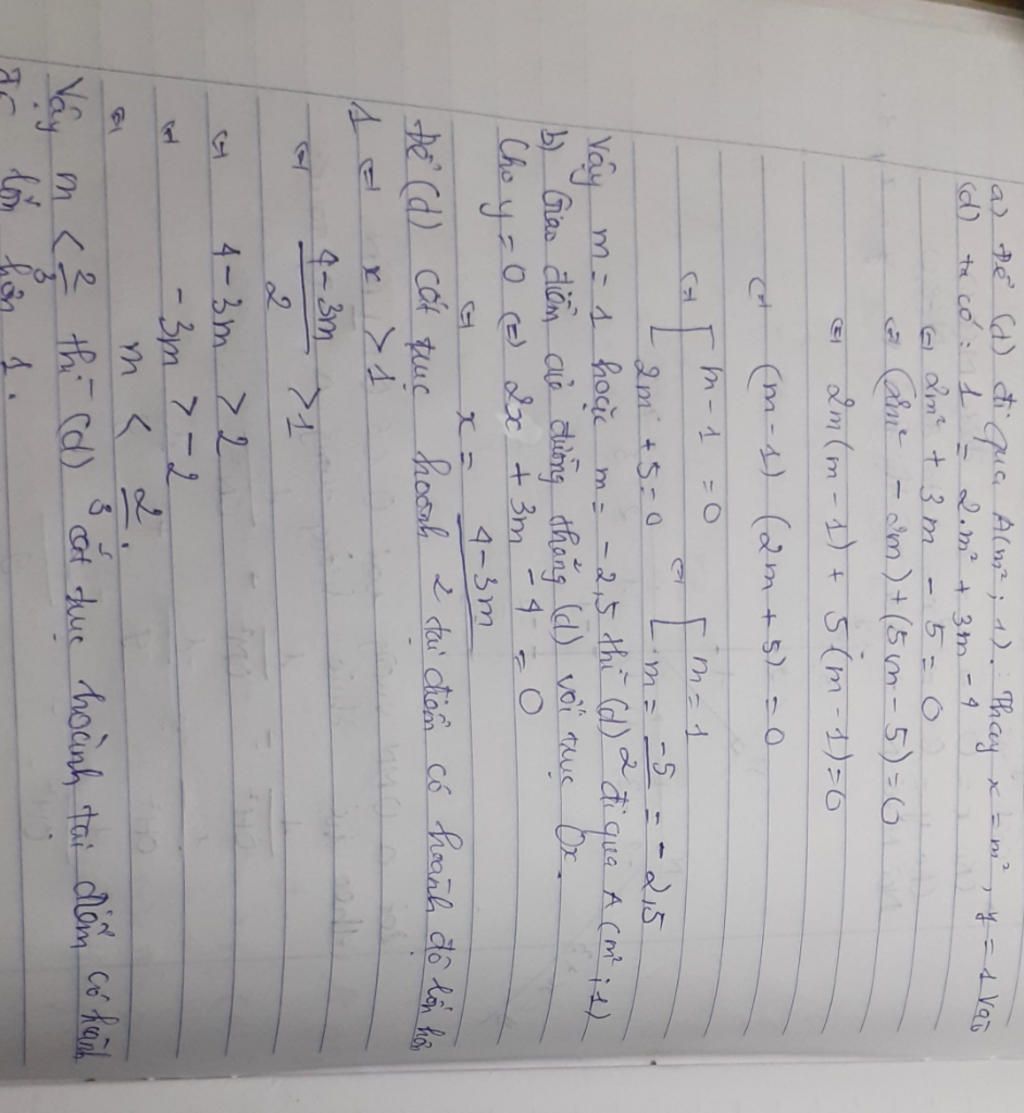 a) Để (d) đi qua A(m²; 1). Thay x = m², y = 1 vào
(d) ta có: 1 = 2.m² + 3m - 4
⇔ 2m² + 3m - 5 = 0
⇔ (2m² - 2m) + (5m - 5) = 0
⇔ 2m(m - 1) + 5(m - 1) = 0
⇔ (m - 1) (2m + 5) = 0
⇔ [ m - 1 = 0 ⇔ [ m = 1
2m + 5 = 0 m = -5/2 = -2,5
Vậy m = 1 hoặc m = -2,5 thì (d) đi qua A (m²; 1)
b) Giao điểm của đường thẳng (d) với trục Ox.
Cho y = 0 ⇔ 2x + 3m - 4 = 0
⇔ x = 4 - 3m / 2
Để (d) cắt trục hoành tại điểm có hoành độ lớn hơn
1 ⇔ x > 1
⇔ 4 - 3m / 2 > 1
⇔ 4 - 3m > 2
⇔ -3m > -2
⇔ m < 2/3.
Vậy m < 2/3 thì (d) cắt trục hoành tại điểm có hoành
độ lớn hơn 1.